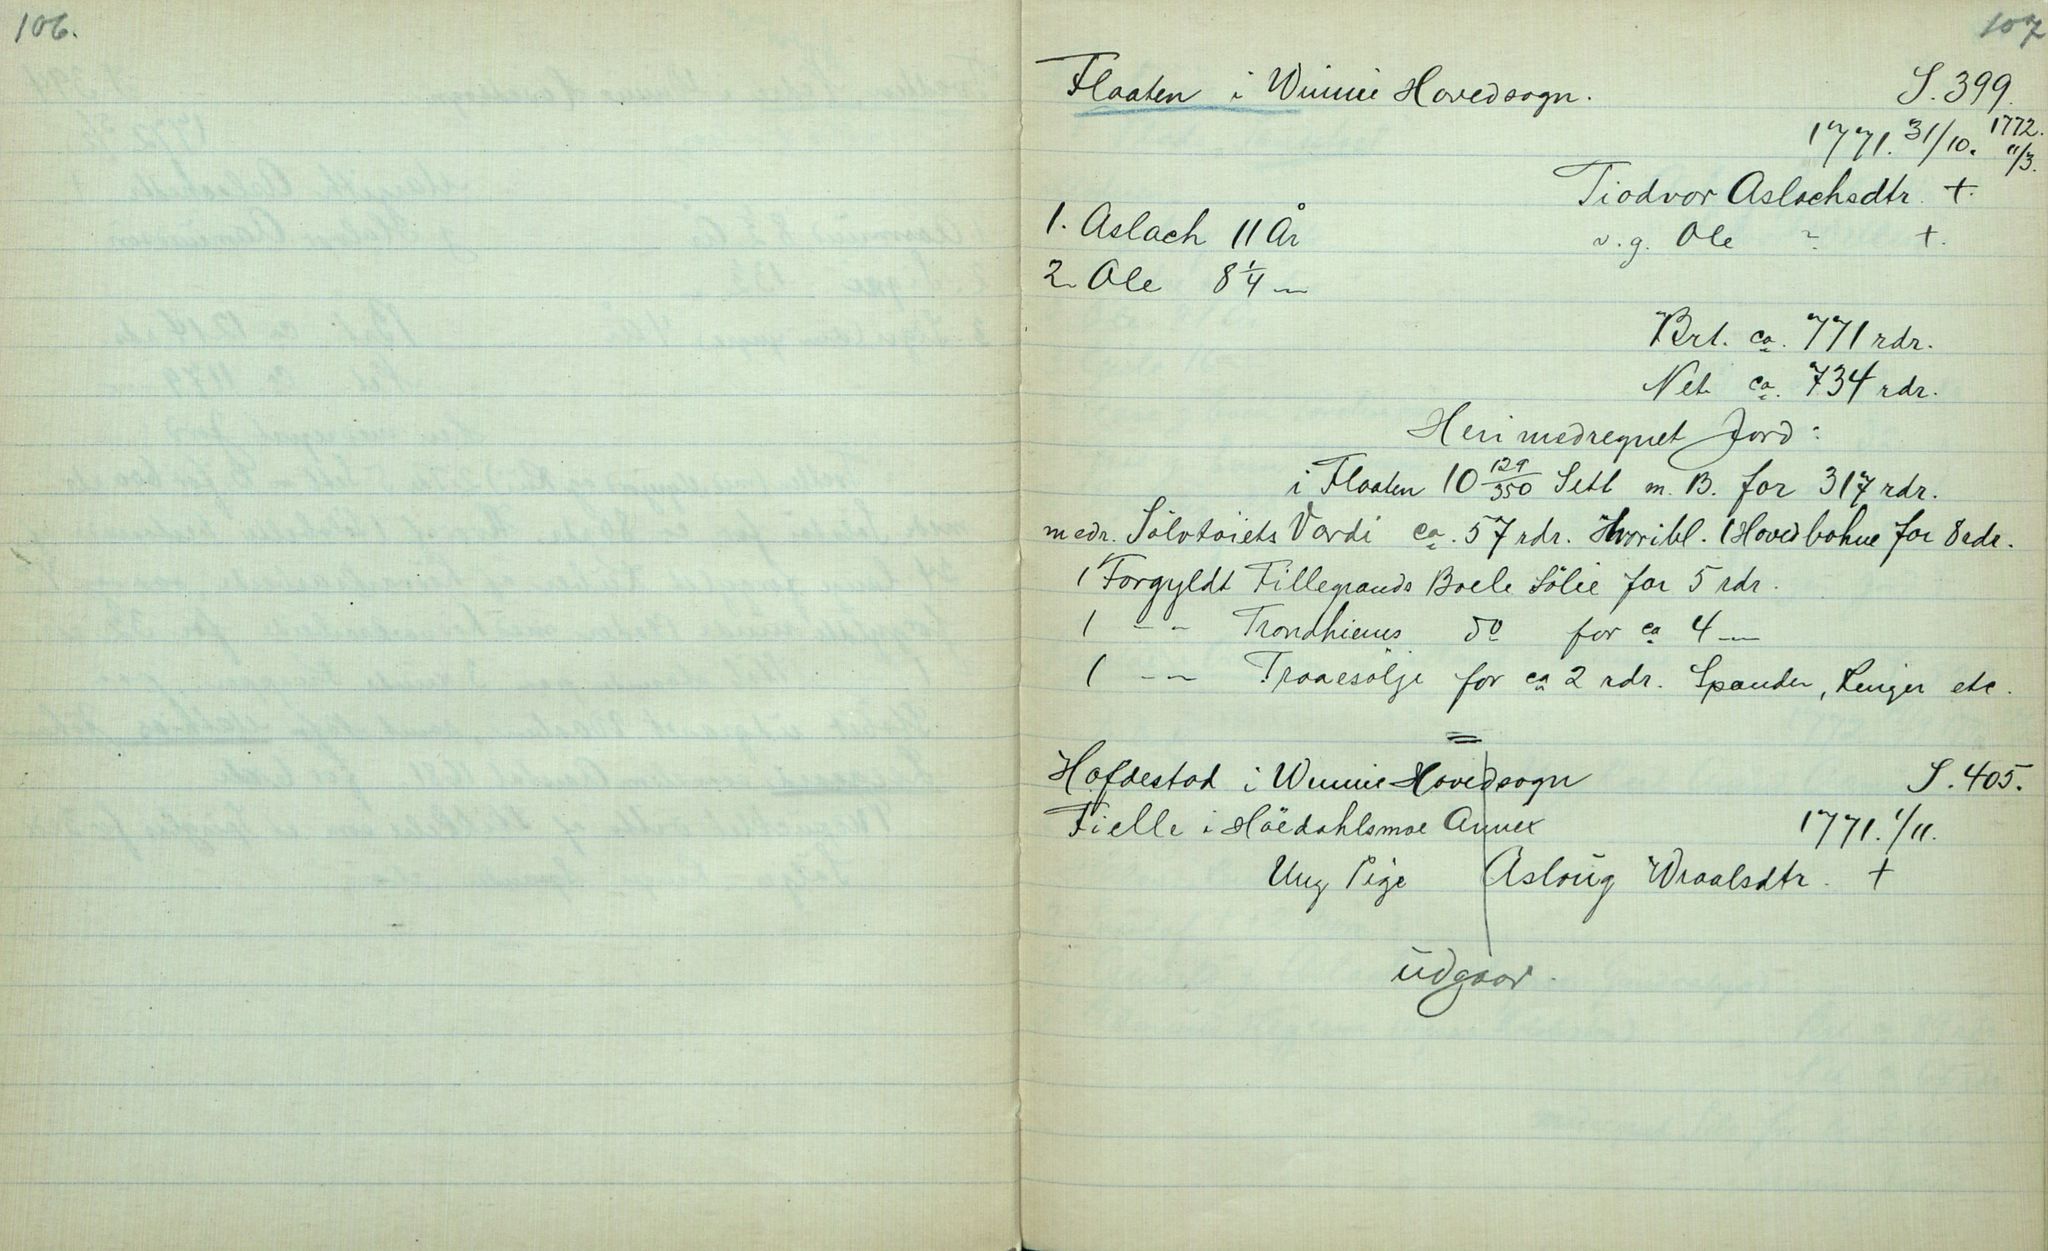 106.
107
Flaaten i Winnie Hovedsogn. S. 399.
1771. 31/10. 1772. 11/3.
Tiodvor Aslachsdtr. +.
1. Aslach 11 År v. g. Ole ~ +.
2 Ole 8 1/4 —
Brt. ca. 771 rdr.
Net. ca. 734 rdr.
Heri medregnet Jord:
i Flaaten 10 129/350 Setl m. B. for 317 rdr.
medr. Sølvtøiets Værdi ca. 57 rdr. Hvoribl. 1 Hoved for 8 rdr.
1 Forgyldt Fillegrands Boele Sölie for 5 rdr.
1 - - Trondhiems do for ca 4 —
1 - - Traaesölje for ca 2 rdr. Spander, Ringer etc.
=
Hafdestad i Winnie Hovedsogn S. 405.
Fielle i Höedahlsmoe Annex 1771. 1/11.
Ung Pige Aslaüg Wraalsdtr. +
üdgaar.